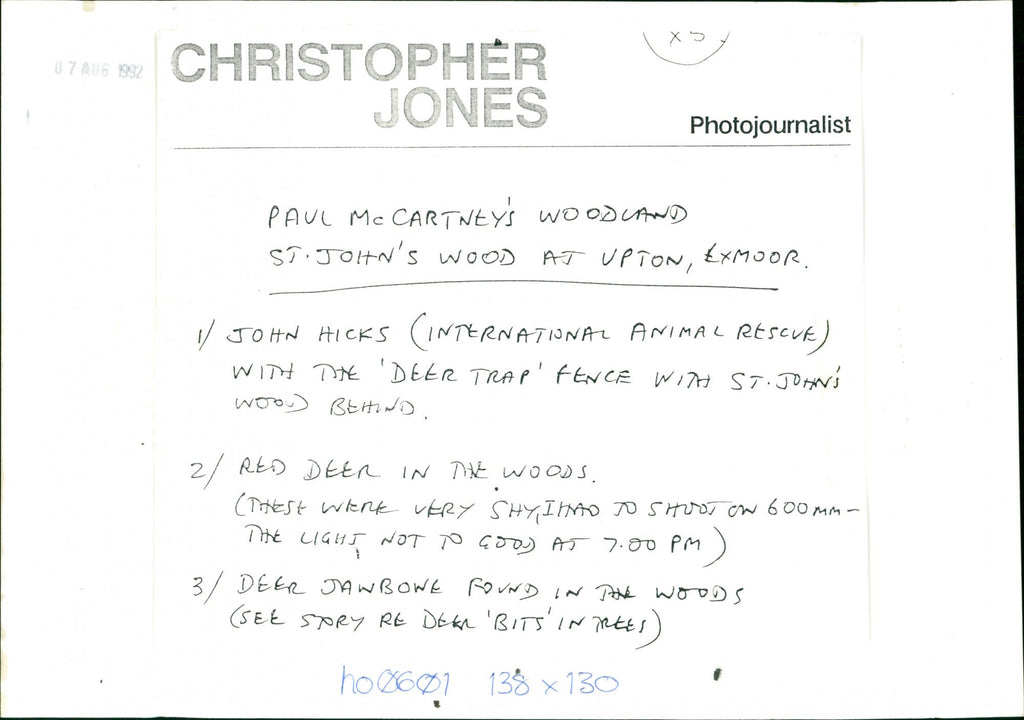 07 AUG 1992
CHRISTOPHER
JONES
x5
Photojournalist
PAUL McCARTNEY'S WOODLAND
ST. JOHN'S WOOD AT UPTON, EXMOOR.
1/ JOHN HICKS (INTERNATIONAL ANIMAL RESCUE)
WITH THE 'DEER TRAP' FENCE WITH ST. JOHN'S
WOOD BEHIND.
2/ RED DEER IN THE WOODS.
(THESE WERE VERY SHY, I HAD TO SHOOT ON 600MM-
THE LIGHT NOT TO GOOD AT 7.00 PM)
3/ DEER JAWBONE FOUND IN THE WOODS
(SEE STORY RE DEER 'BITS' IN TREES)
ho0601 138 x 130